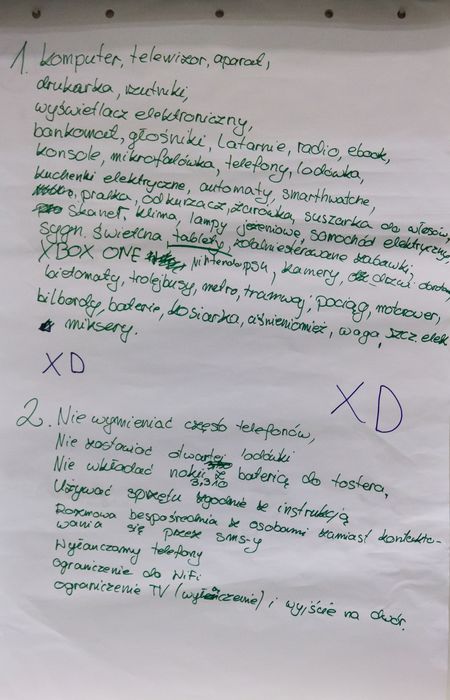 1. Komputer, telewizor, aparat,
drukarka, rzutniki,
wyświetlacz elektroniczny,
bankomat, głośniki, Latarnie, radio, ebook,
konsole, mikrofalówka, telefony, lodówka,
kuchenki elektryczne, automaty, smarthwatche,
pralka, odkurzacz, żarówka, suszarka do włosów,
Skaner, klima, lampy jarzeniowe, samochód elektryczny,
sygn. świetlna, tablety, zdalniesterowane zabawki,
XBOX ONE Nintendo psp, kamery, drzwi
bietomaty, trolejbusy, metro, tramwaj, pociąg, motorower,
bilbordy, baterie, kosiarka, ciśnieniomież, waga, szcz. elek
miksery.
XD
XD
2. Nie wymieniać często telefonów,
Nie zostawiać otwartej lodówki
Nie wkładać nokii z baterią do tostera,
3310
Używać sprzętu zgodnie ze instrukcją
Rozmowa bespośrednia ze osobami zamiast kontakto-
wania się przez sms-y
Wyłanczamy telefony
ograniczenie do WiFi
ograniczenie TV (wyłańczenie) i wyjście na dwór.